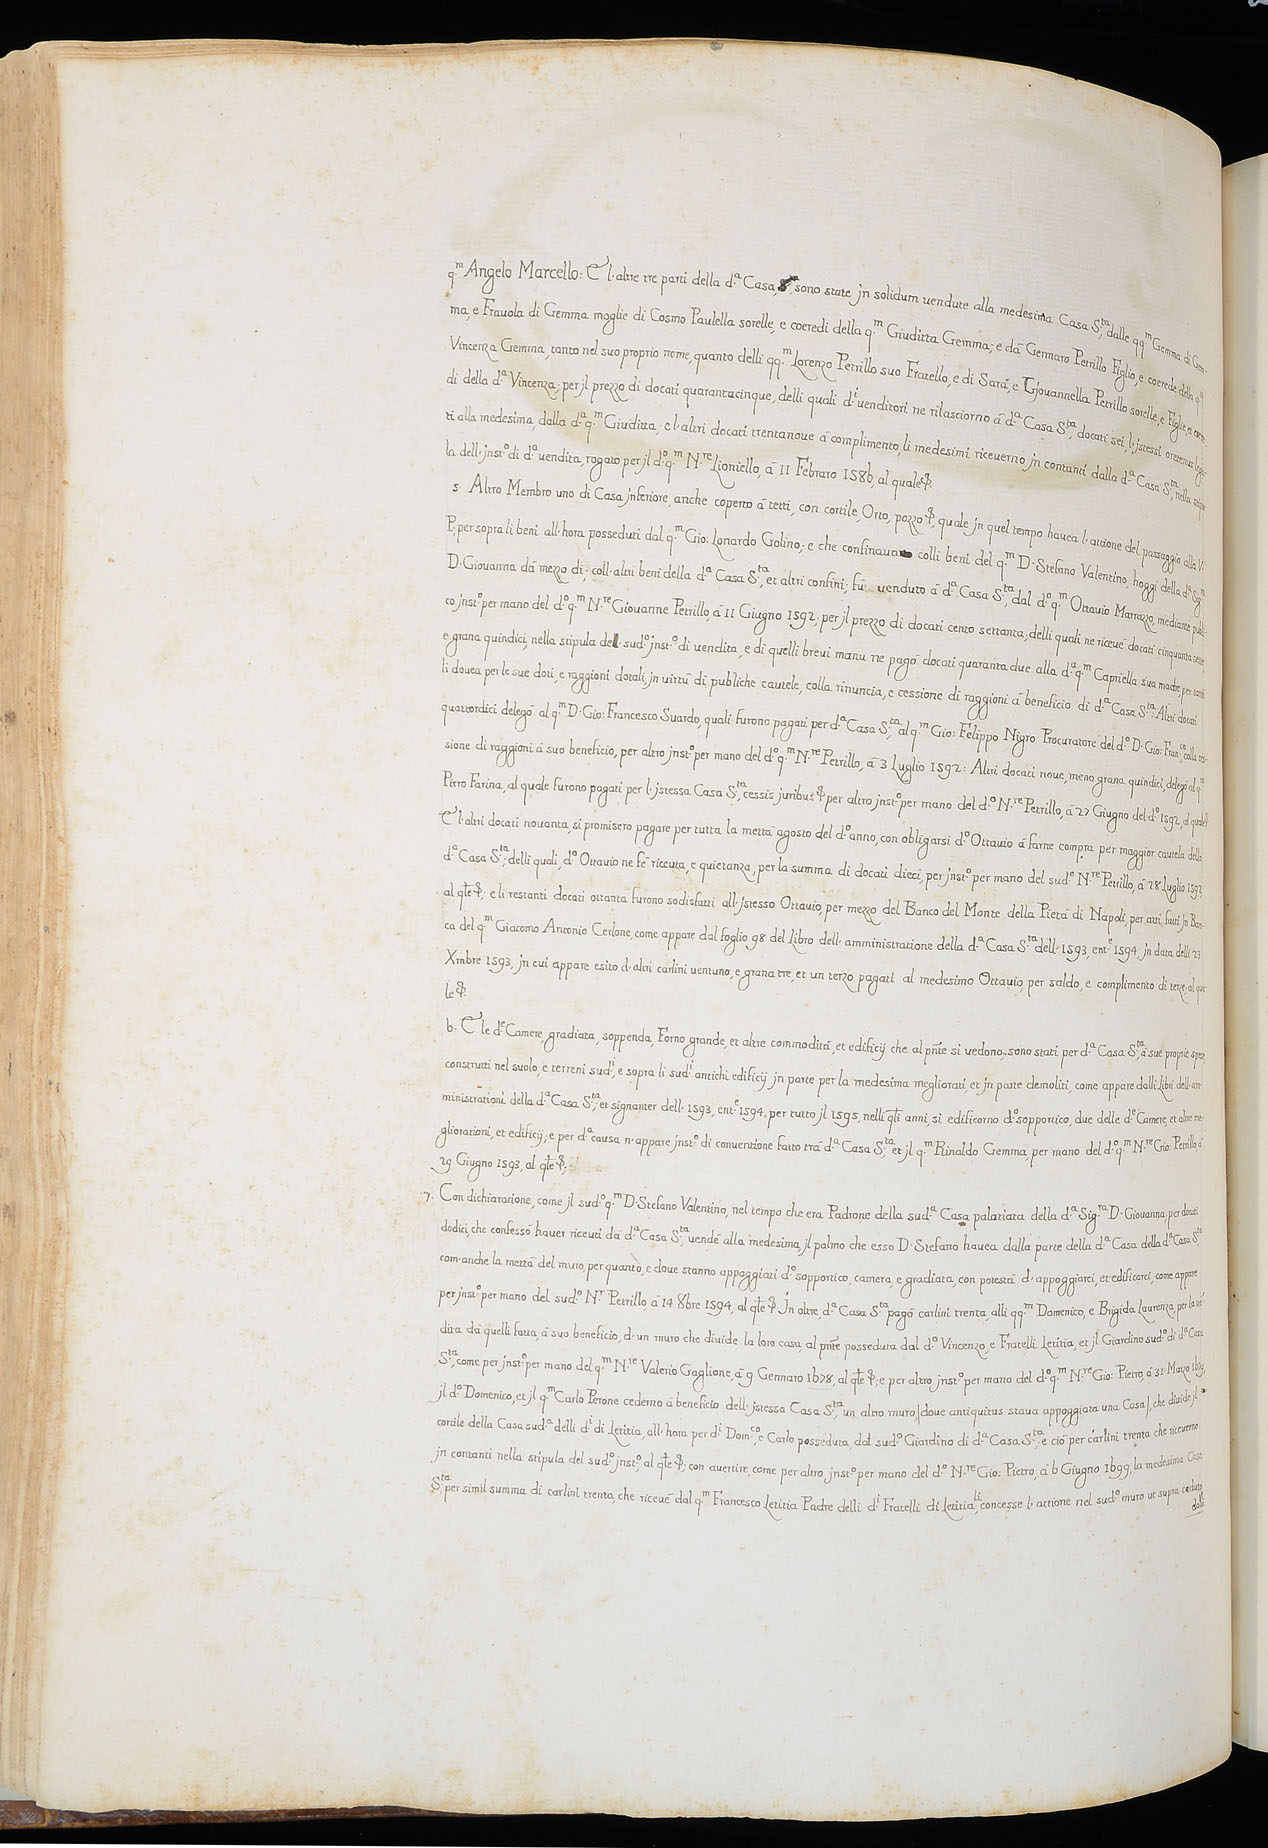 q.m Angelo Marcello: E l'altre tre parti della d.a Casa, S.ta, sono state jn solidum uendute alla medesima Casa S.ta, dalle qq.m Gemma di Gem-
ma, e Frauola di Gemma moglie di Cosmo Paulella sorelle, e coeredi della q.m Giuditta Gemma; e dà Gennaro Petrillo Figlio, e coerede della q.m
Vincenza Gemma, tanto nel suo proprio nome, quanto delli qq.m Lorenzo Petrillo suo Fratello, e di Sara, e Giouannella Petrillo sorelle, e Figlie, e coere-
di della d.a Vincenza; per jl prezzo di docati quarantacinque, delli quali d.i uenditori ne rilasciorno à d.a Casa S.ta, docati sei, l'jstessi
ti alla medesima, dalla d.a q.m Giuditta; e l'altri docati trentanoue à complimento, li medesimi riceuerno jn contanti dalla d.a Casa S.ta, nella stipu-
la dell'jnst.o di d.a uendita, rogato per jl d.o q.m N.re Lioniello, à 11 Febraro 1586, al quale &.
5. Altro Membro uno di Casa jnferiore, anche coperto à tetti, con cortile, Orto, pozzo &, quale jn quel tempo hauea l'attione del passaggio alla V.
P. per sopra li beni all'hora posseduti dal q.m Gio: Lonardo Golino; e che confinaua colli beni del q.m D. Stefano Valentino, hoggi della d.a Sig.ra
D. Giouanna dà mezzo dì; coll'altri beni della d.a Casa S.ta, et altri confini; fù uenduto à d.a Casa S.ta, dal d.o q.m Ottauio Marrazzo, mediante publi-
co jnst.o per mano del d.o q.m N.re Giouanne Petrillo, à 11 Giugno 1592, per jl prezzo di docati cento settanta; delli quali ne riceuè docati cinquanta sette,
e grana quindici, nella stipula del sud.o jnst.o di uendita, e di quelli breui manu ne pagò docati quaranta due alla d.a q.m Capriella sua madre, per tanti
li douea per le sue doti, e raggioni dotali, jn uirtù di publiche cautele, colla rinuncia, e cessione di raggioni à beneficio di d.a Casa S.ta: Altri docati
quattordici delegò al q.m D. Gio: Francesco Suardo, quali furono pagati per d.a Casa S.ta, al q.m Gio: Felippo Nigro Procuratore del d.o D. Gio: Fran.co, colla ces-
sione di raggioni à suo beneficio, per altro jnst.o per mano del d.o q.m N.re Petrillo, à 3 Luglio 1592: Altri docati noue, meno grana quindici, delegò al q.m
Pirro Farina, al quale furono pagati per l'jstessa Casa S.ta, cessis juribus & per altro jnst.o per mano del d.o N.re Petrillo, à 27 Giugno del d.o 1592, al quale &
E l'altri docati nouanta, si promisero pagare per tutta la mettà agosto del d.o anno, con obligarsi d.o Ottauio à farne compra per maggior cautela della
d.a Casa S.ta; delli quali, d.o Ottauio ne fè riceuta, e quietanza, per la summa di docati dieci, per jnst.o per mano del sud.o N.re Petrillo, à 28 Luglio 1592
al qle &: e li restanti docati ottanta furono sodisfatti all'jstesso Ottauio, per mezzo del Banco del Monte della Pietà di Napoli, per atti fatti jn Ban-
ca del q.m Giacomo Antonio Cerlone, come appare dal foglio 98 del Libro dell'amministratione della d.a Casa S.ta dell'1593, ent.e 1594, jn data delli 23
Xmbre 1593, jn cui appare esito d'altri carlini uentuno, e grana tre, et un terzo pagati al medesimo Ottauio, per saldo, e complimento di terze; al qua-
le &.
6. E le d.e Camere, gradiata, soppenda, Forno grande, et altre commodità, et edificij che al pnte si uedono, sono stati per d.a Casa S.ta, à sue proprie spese
construtti nel suolo, e terreni sud.i, e sopra li sud.i antichi edificij jn parte per la medesima megliorati, et jn parte demoliti, come appare dalli Libri dell'am-
ministrationi della d.a Casa S.ta, et signanter dell'1593, ent.e 1594, per tutto jl 1595, nelli qli anni, si edificorno d.o sopportico, due delle d.e Camere, et altre me-
gliorationi, et edificij; e per d.a causa n'appare jnst.o di conuentione fatto trà d.a Casa S.ta, et jl q.m Rinaldo Gemma, per mano del d.o q.m N.re Gio: Petrillo, à
29 Giugno 1593, al qle &.
7. Con dichiaratione, come jl sud.o q.m D. Stefano Valentino, nel tempo che era Padrone della sud.a Casa palatiata della d.a Sig.ra D. Giouanna, per docati
dodici, che confessò hauer riceuti dà d.a Casa S.ta, uendè alla medesima, jl palmo che esso D. Stefano hauea dalla parte della d.a Casa della d.a Casa S.ta
com'anche la mettà del muro, per quanto, e doue stanno appoggiati d.o sopportico, camera, e gradiata, con potestà d'appoggiarci, et edificarci, come appare
per jnst.o per mano del sud.o N.r Petrillo, à 14 8bre 1594, al qle & Jn oltre, d.a Casa S.ta pagò carlini trenta, alli qq.m Domenico, e Brigida Laurenza, per la uen-
dita dà quelli fatta, à suo beneficio, d'un muro che diuide la loro casa, al pnte posseduta dal d.o Vincenzo, e Fratelli Letitia, et jl Giardino sud.o di d.a Casa
S.ta, come per jnst.o per mano del q.m N.re Valerio Gaglione, à 9 Gennaro 1678, al qle &; e per altro jnst.o per mano del d.o q.m N.re Gio: Pietro, à 31 Marzo 1679,
jl d.o Domenico, et jl q.m Carlo Perone cederno à beneficio dell'jstessa Casa S.ta, un altro muro, | doue antiquitus staua appoggiata una Casa |, che diuide jl
cortile della Casa sud.a delli d.i di Letitia, all'hora per d.i Dom.co, e Carlo posseduta, dal sud.o Giardino di d.a Casa S.ta; e ciò per carlini trenta che riceuerno
jn contanti nella stipula del sud.o jnst.o, al qle &; con auertire, come per altro jnst.o per mano del d.o N.re Gio: Pietro, à 6 Giugno 1699, la medesima Casa
S.ta, per simil summa di carlini trenta, che riceuè dal q.m Francesco Letitia Padre delli d.i Fratelli di Letitia, li concesse l'attione nel sud.o muro ut supra ceduto
dalli